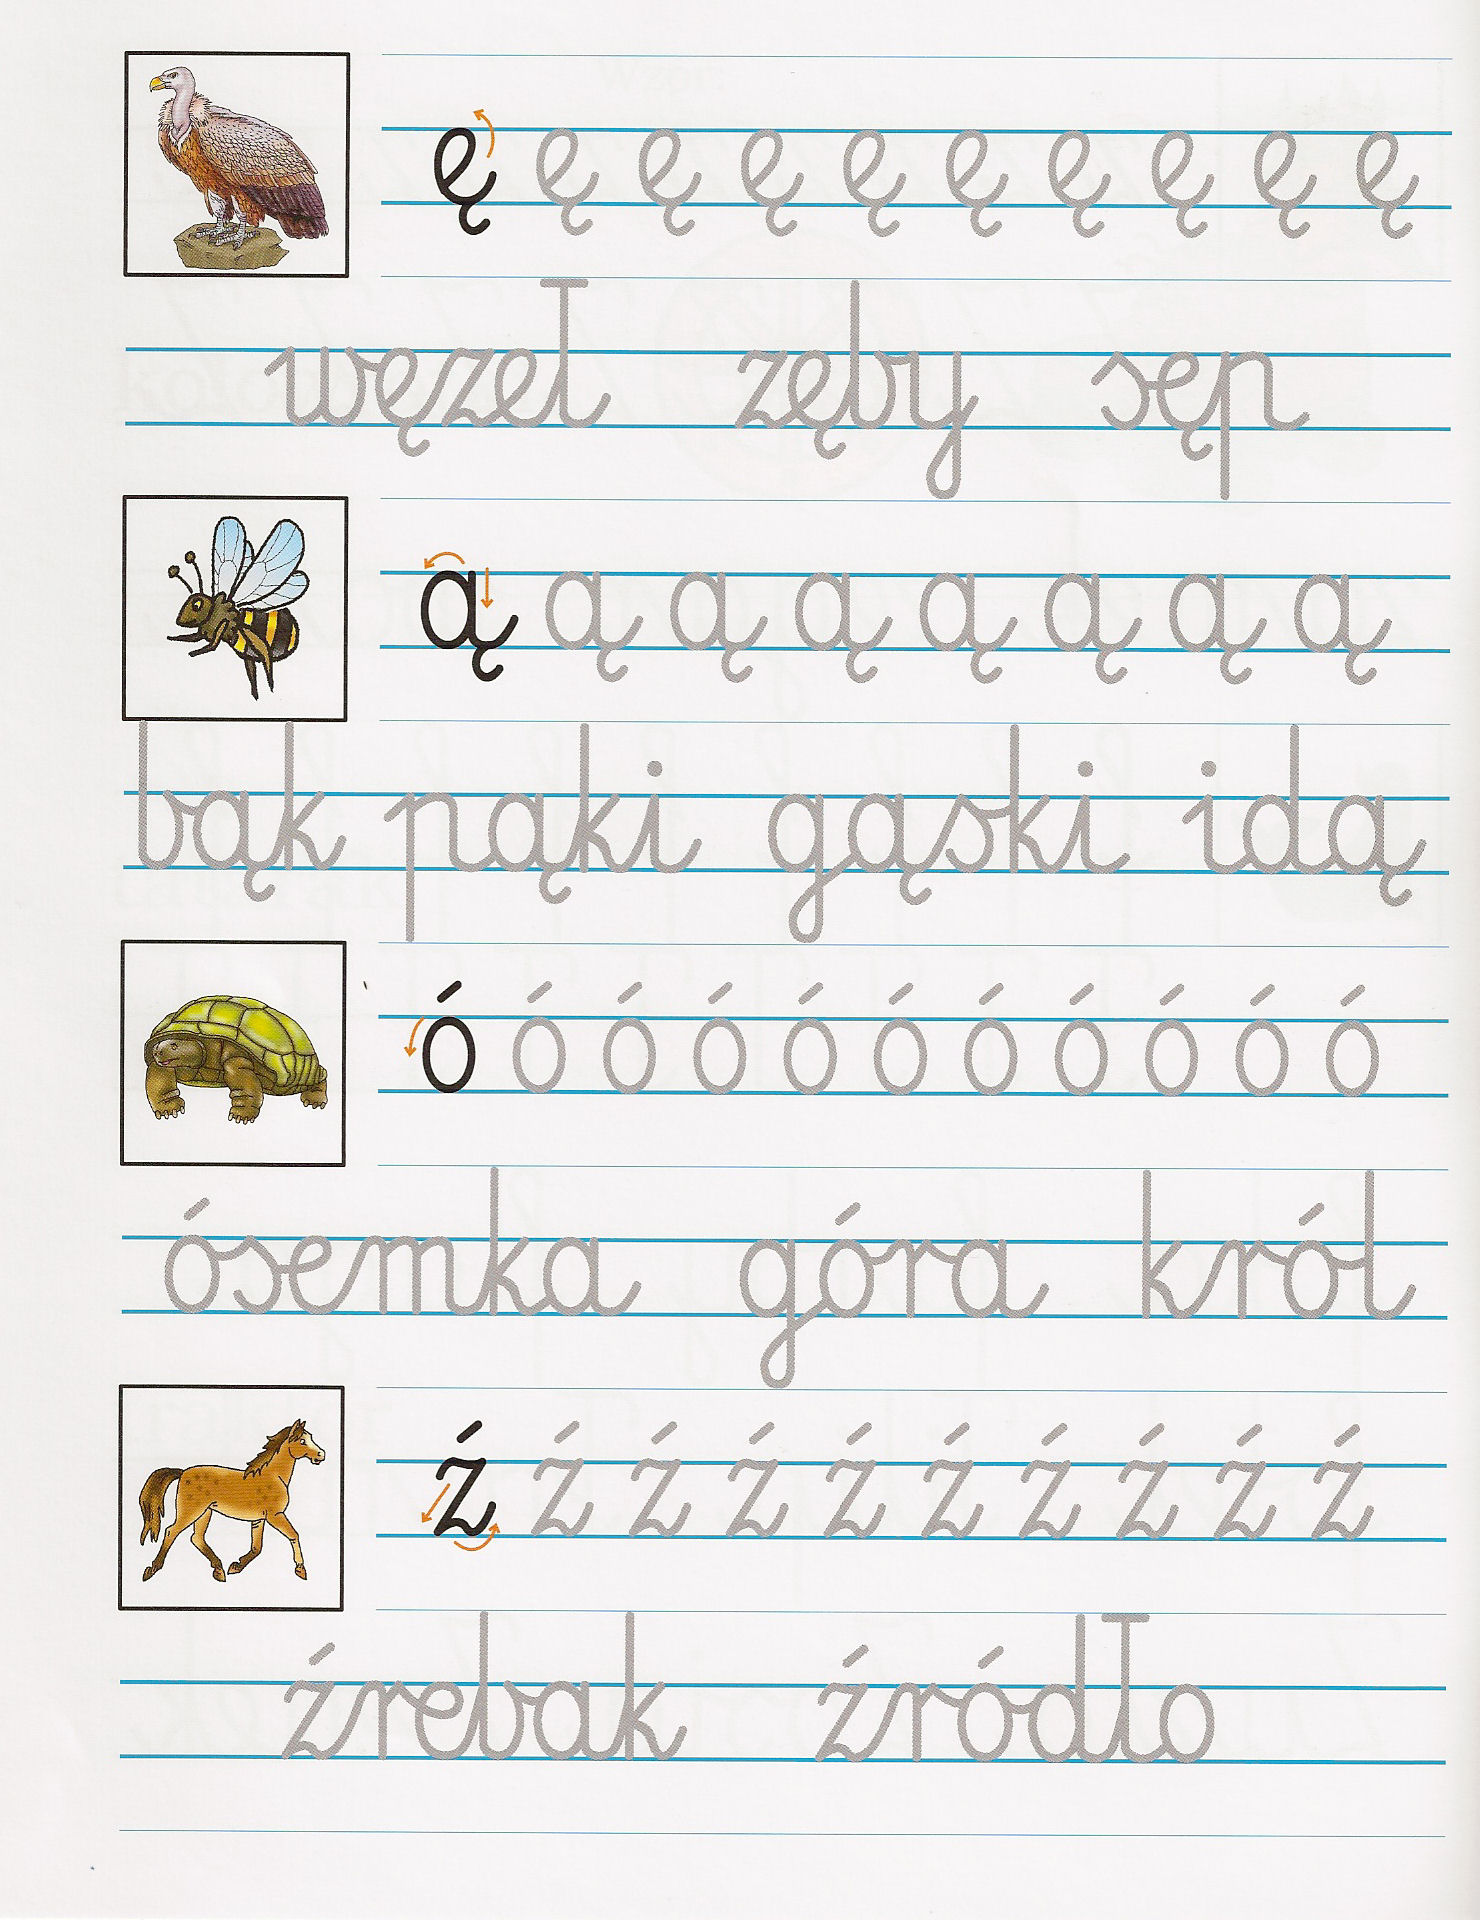 ę ę ę ę ę ę ę ę ę ę
węzeł zęby sęp
ą ą ą ą ą ą ą ą
bąk pąki gąski idą
ó ó ó ó ó ó ó ó ó ó ó
ósemka góra król
ź ź ź ź ź ź ź ź ź ź
źrebak źródło